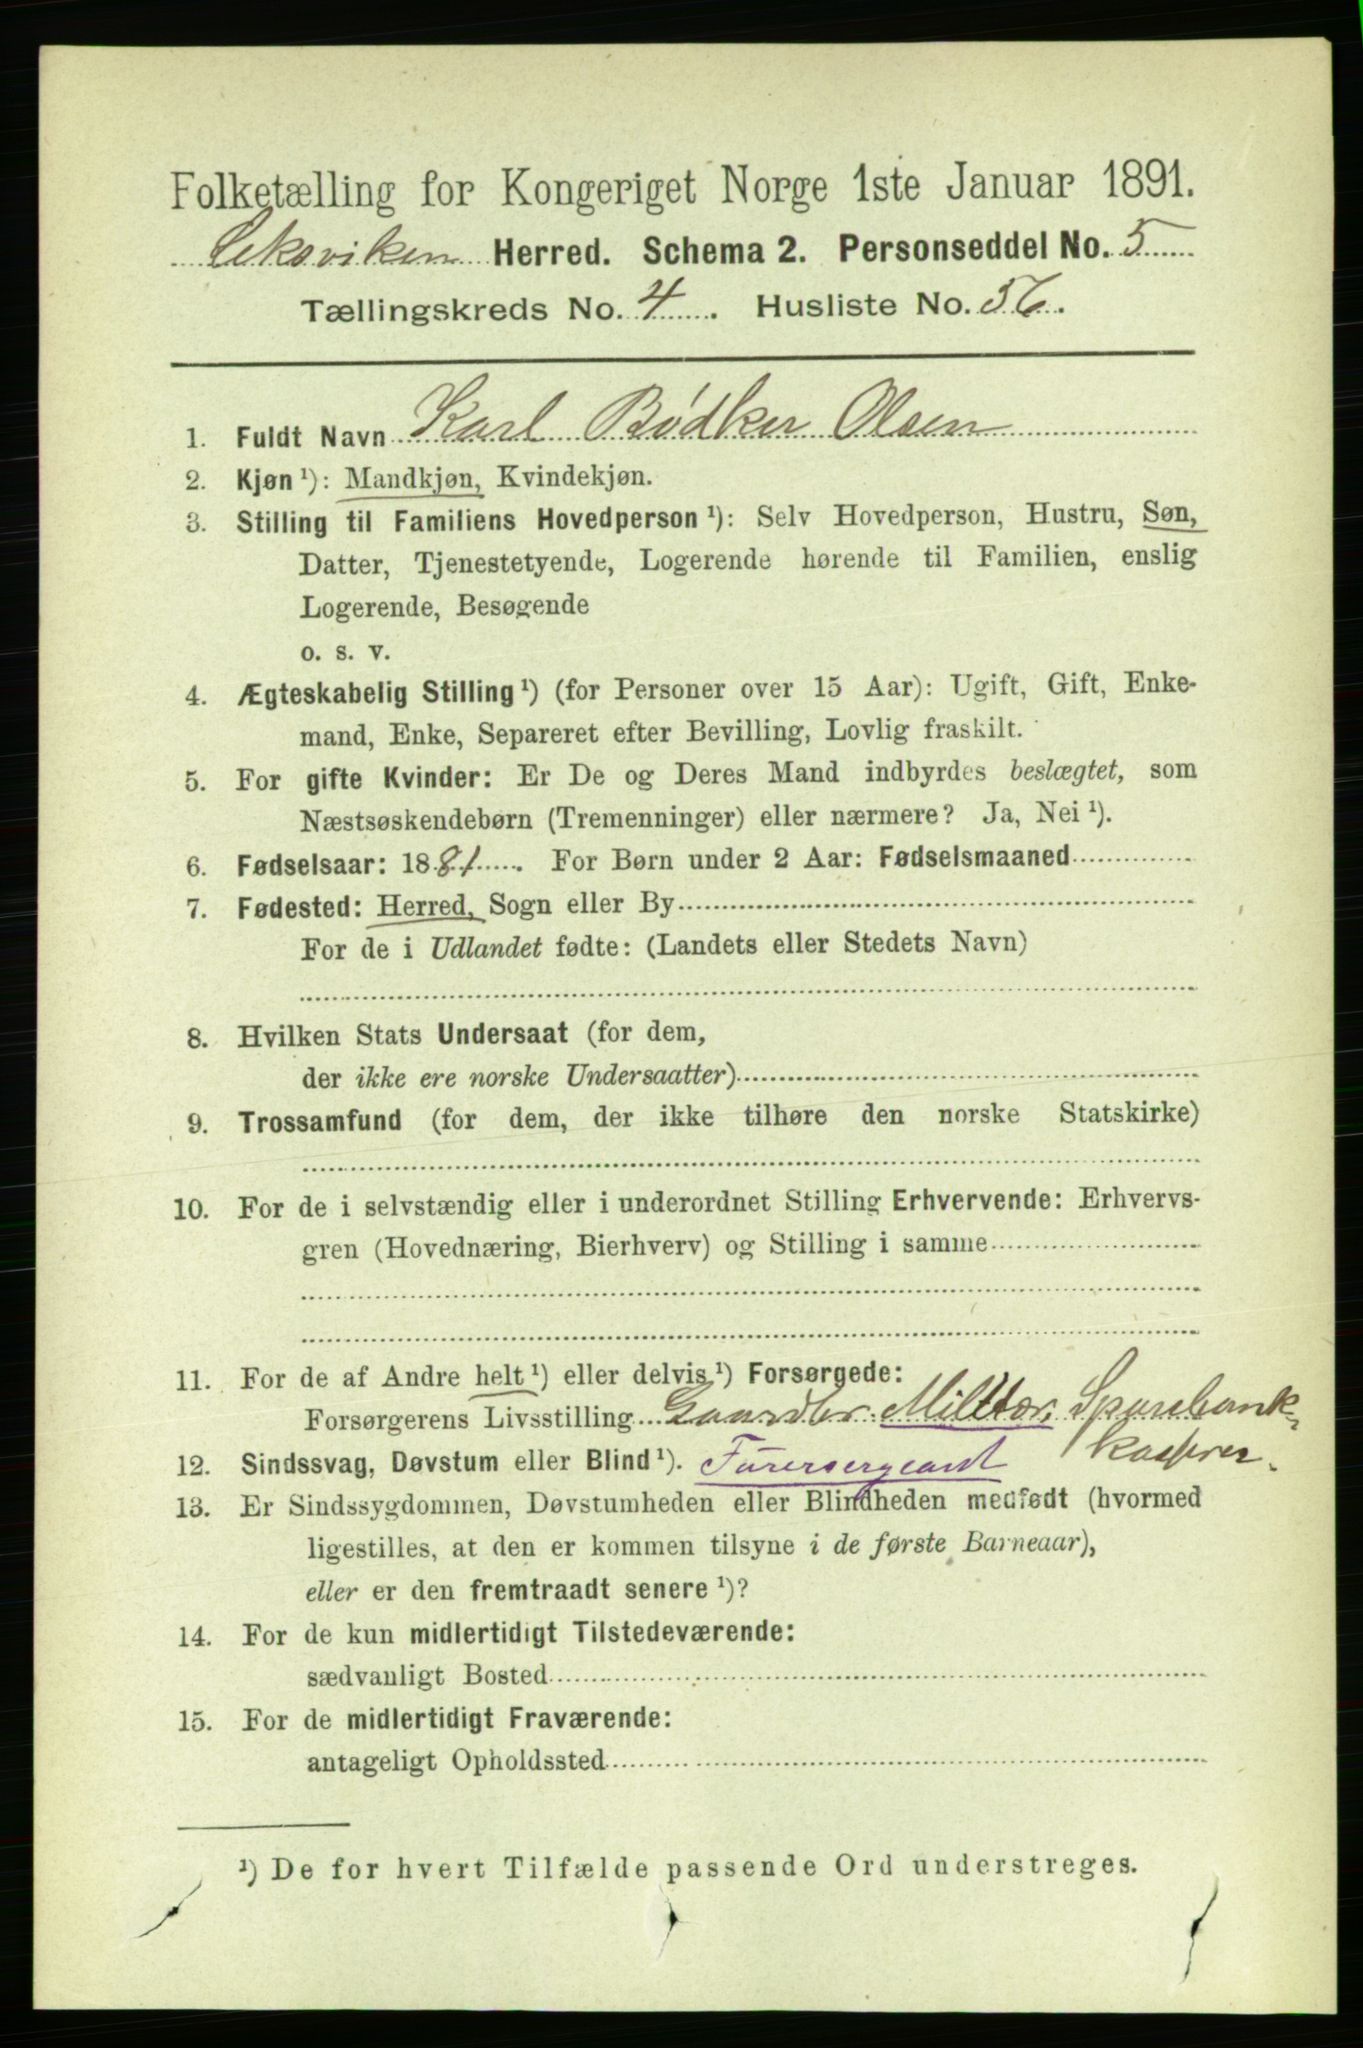 Folketælling for Kongeriget Norge 1ste Januar 1891.
Leksviken Herred. Schema 2. Personseddel No. 5
Tællingskreds No. 4. Husliste No. 56.
1. Fuldt Navn Karl Bødker Olsen
2. Kjøn ¹): Mandkjøn, Kvindekjøn.
3. Stilling til Familiens Hovedperson ¹): Selv Hovedperson, Hustru, Søn,
Datter, Tjenestetyende, Logerende hørende til Familien, enslig
Logerende, Besøgende
o. s. v.
4. Ægteskabelig Stilling ¹) (for Personer over 15 Aar): Ugift, Gift, Enke-
mand, Enke, Separeret efter Bevilling, Lovlig fraskilt.
5. For gifte Kvinder: Er De og Deres Mand indbyrdes beslægtet, som
Næstsøskendebørn (Tremenninger) eller nærmere? Ja, Nei ¹).
6. Fødselsaar: 1881. For Børn under 2 Aar: Fødselsmaaned
7. Fødested: Herred, Sogn eller By
For de i Udlandet fødte: (Landets eller Stedets Navn)
8. Hvilken Stats Undersaat (for dem,
der ikke ere norske Undersaatter)
9. Trossamfund (for dem, der ikke tilhøre den norske Statskirke)
10. For de i selvstændig eller i underordnet Stilling Erhvervende: Erhvervs-
gren (Hovednæring, Bierhverv) og Stilling i samme
11. For de af Andre helt ¹) eller delvis ¹) Forsørgede:
Forsørgerens Livsstilling Gaardbr. Militær, Sparebank-
kasserer.
12. Sindssvag, Døvstum eller Blind ¹). Furersergeant
13. Er Sindssygdommen, Døvstumheden eller Blindheden medfødt (hvormed
ligestilles, at den er kommen tilsyne i de første Barneaar),
eller er den fremtraadt senere ¹)?
14. For de kun midlertidigt Tilstedeværende:
sædvanligt Bosted
15. For de midlertidigt Fraværende:
antageligt Opholdssted
¹) De for hvert Tilfælde passende Ord understreges.